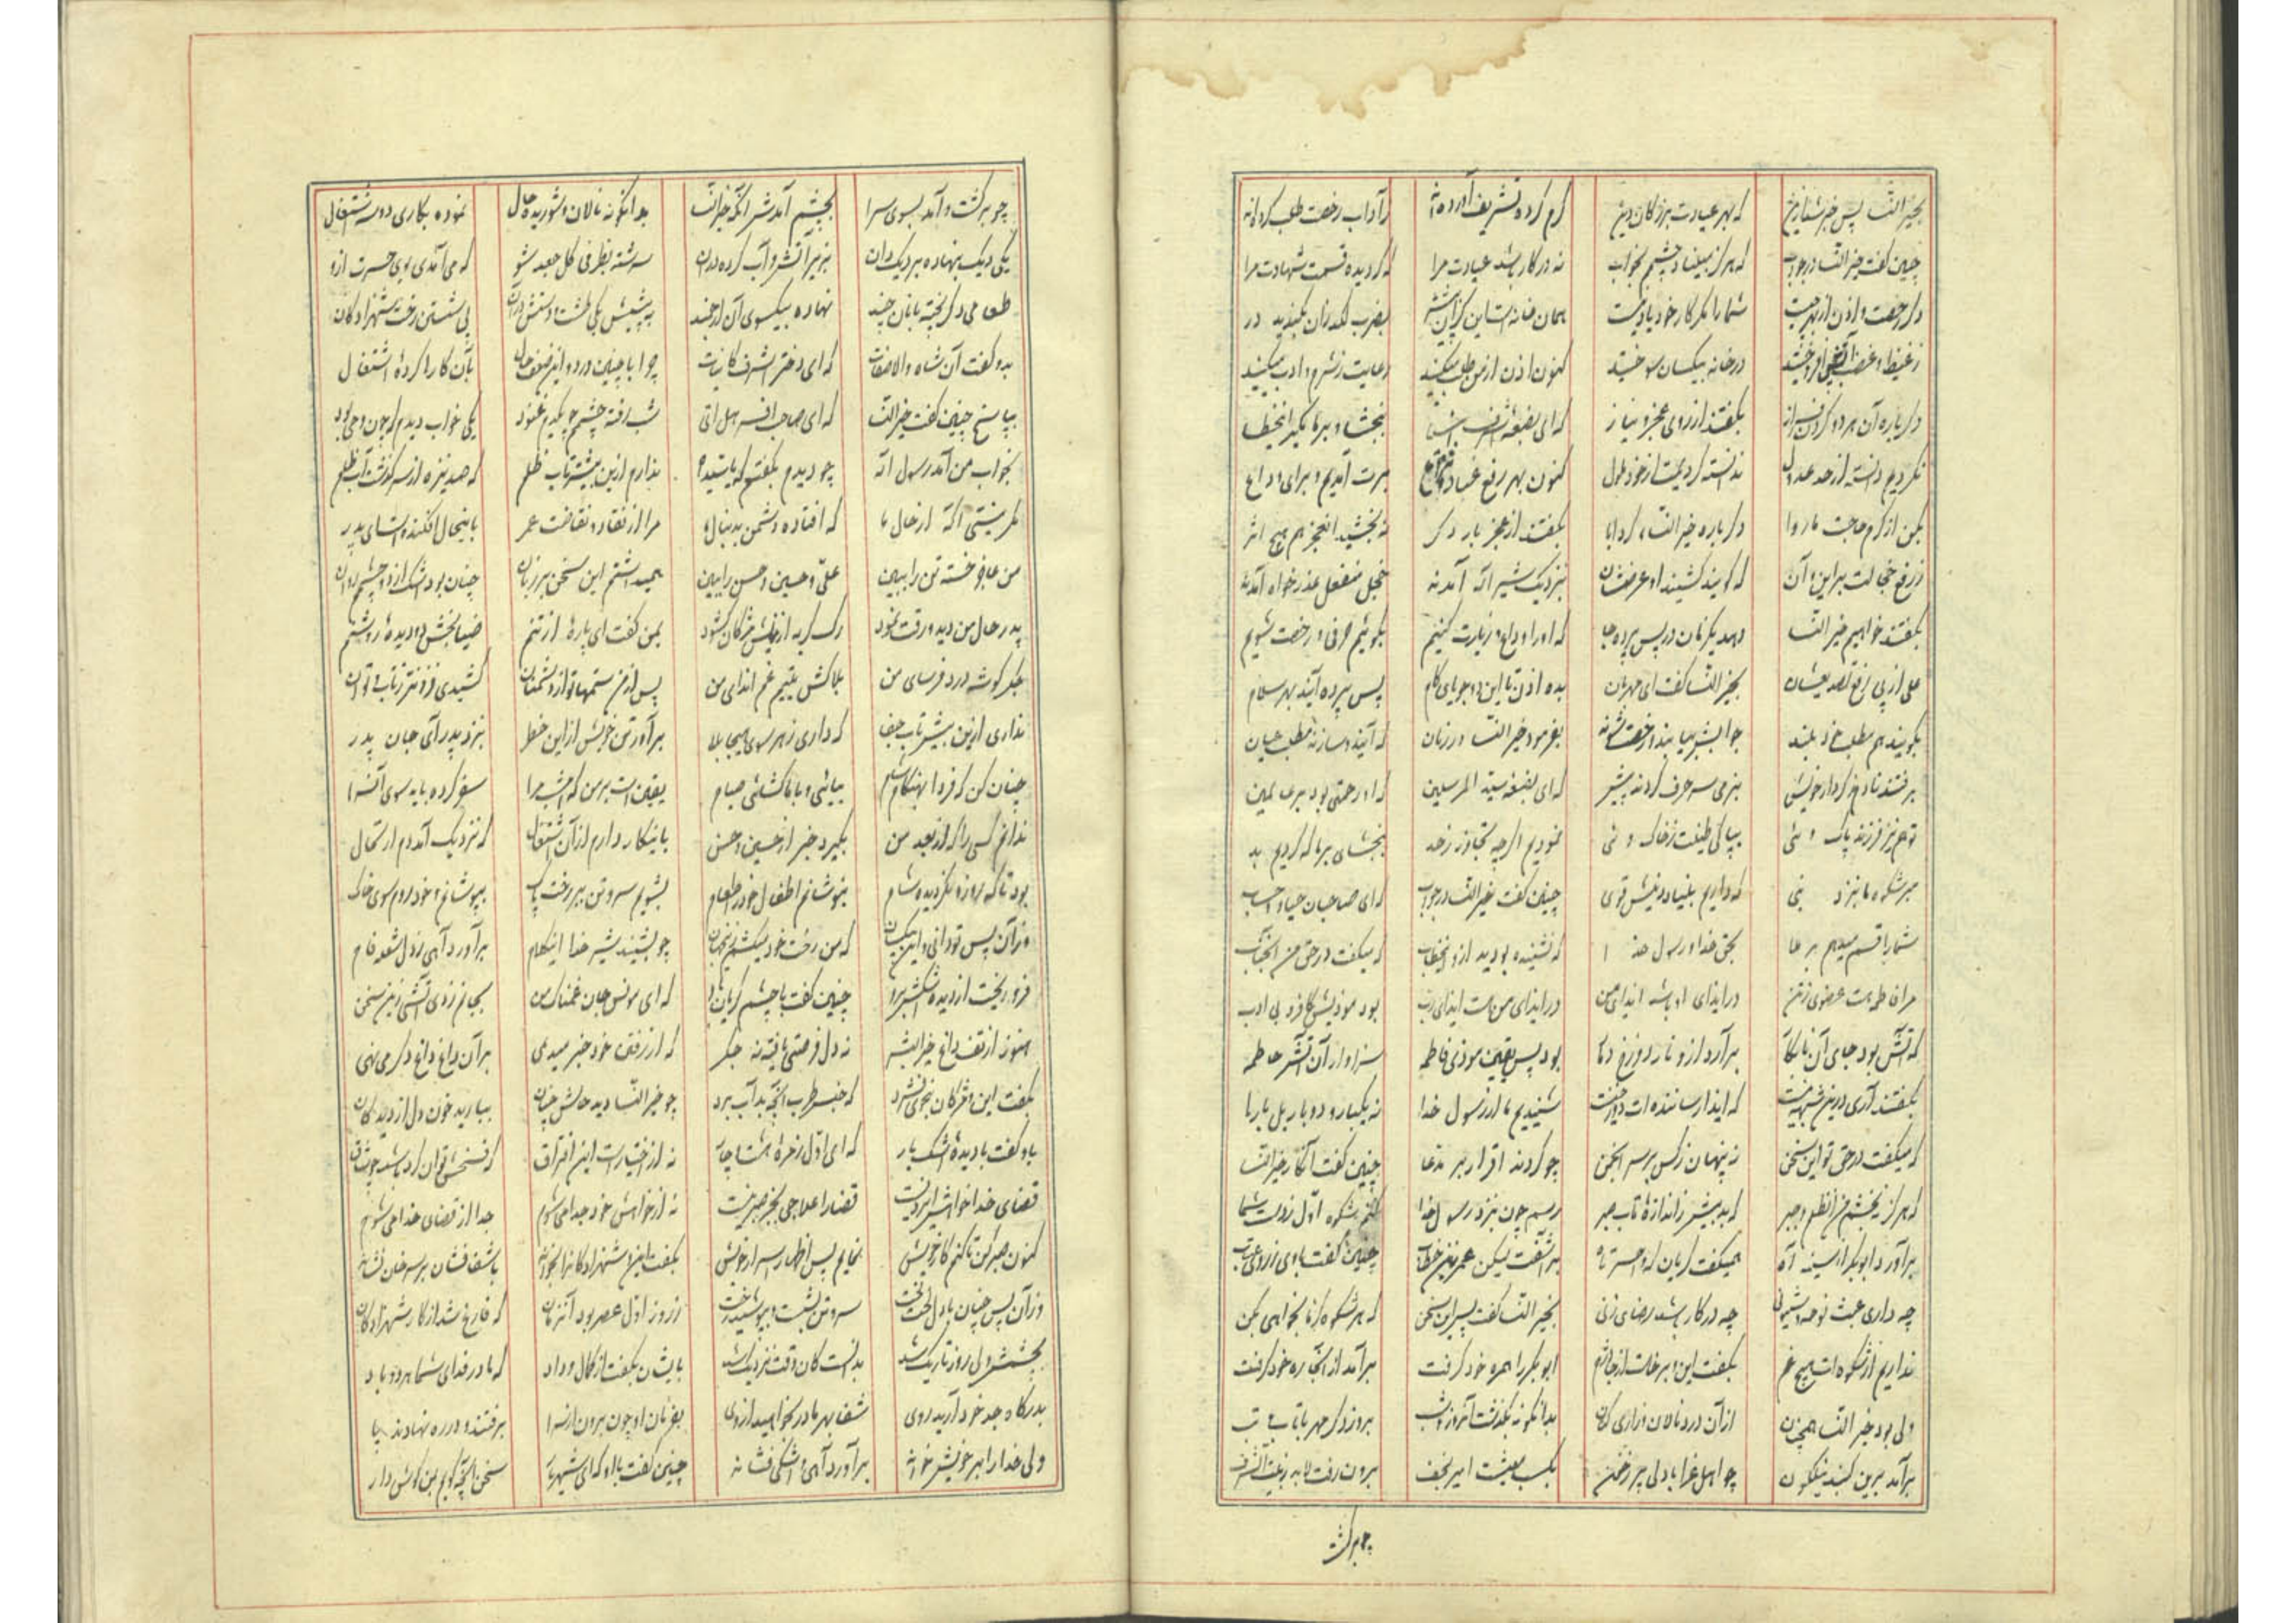 بخیر النسا پس خبر شد ازین که بهر عیادت بزرگان دین کرم کرده تشریف آورده‌اند ز آداب رخصت طلب کرده‌اند
چنین گفت خیر النسا در جواب که هرگز مبیناد چشمم بخواب نه در کار باشد عیادت مرا که گردیده قسمت شهادت مرا
دگر رخصت و اذن از بهر چیست شما را مگر کار خود یاد نیست همان خانه است این کزان پیشتر بضرب لگد زان فکندید در
ز غیظ و غضب آتش افروختید در خانه یکسان بسوختید کنون اذن از من طلب میکنید رعایت ز شرم و ادب میکنید
دگر باره آن هر دو گردن فراز بگفتند از روی عجز و نیاز که ای بضعه اشرف انبیا ببخشا و بر ما مگیر این خطا
نکردیم دانسته از حد عدول ندانسته کردیمت از خود ملول کنون بهر رفع غبار برت آمدیم و برای وداع
بکن از کرم حاجت ما روا دگر باره خیر النسا کرد ابا بگفتند از عجز بار دگر نه بخشید آن عجز هم هیچ اثر
ز رفع خجالت براین و آن که گویند نشنید او عرضشان بنزدیک شیر اله آمدند خجل منفعل عذر خواه آمدند
بگفتند خواهیم خیر النسا دهد یکزمان در پس پرده جا که او را وداع و زیارت کنیم بگوئیم حرفی و رخصت شویم
علی از پی رفع تصدیعشان بخیر النسا گفت ای مهربان بده اذن تا این دو جویای کام پس پرده آیند بهر سلام
بگویند هم مطلب خود بلند جوابش بیابند و رخصت شوند بفرمود خیر النسا در زمان که آیند و سازند مطلب عیان
برفتند نادم ز کردار خویش بنرمی سر حرف کردند پیش که ای بضعه سید المرسلین که او رحمتی بود بر عالمین
توهم نیز فرزند پاک وئی بپاکی طینت ز خاک وئی نمودیم اگر چه تجاوز ز حد ببخشای بر ما که کردیم بد
مبر شکوه ما بنزد نبی که داریم بنیاد دینش قوی چنین گفت خیر النسا در جواب که ای صاحبان حیا و حساب
شما را قسم میدهم بر ملا بحق خدا و رسول خدا که نشنیده بودید از او خطاب که میگفت در حق من آنجناب
مرا فاطمه است عضوی ز تن در ایذای او باشد ایذای من در ایذای من هست ایذای رب بود موذیش کافر بی ادب
که آتش بود جای آن نابکار برآرد ازو نار دوزخ دمار بود پس یقین موذی فاطمه سزاوار آن آتش حاطمه
بگفتند آری درین شبهه نیست که ایذا رساننده‌ات دوزخیست شنیدیم ما از رسول خدا نه یکبار و دو بار بل بارها
که میگفت در حق تو این سخن نه پنهان ز کس بر سر انجمن چو کردند اقرار بر مدعا چنین گفت آنگاه خیر النسا
که هرگز نبخشم من آن ظلم و جبر که بد بیشتر ز اندازهٔ تاب صبر رسم چون بنزد رسول خدا کنم شکوه اول ز دست شما
برآورد ابوبکر از سینه آه همیگفت گریان که واحسرتاه برآشفت لیکن عمر زین خطاب چنین گفت با وی ز روی عتاب
چه داری عبث نوحه و شیونی چه در کار باشد رضای زنی بخیر النسا گفت پس این سخن که هر شکوه کز ما بخواهی بکن
نداریم از شکوه‌ات هیچ غم بگفت این و برخاست از جا دژم ابوبکر را همره خود گرفت برآمد از آنجا ره خود گرفت
ولی بود خیر النسا همچنان از آن درد نالان و زاری کنان بدانگونه بگذشت آنروز و شب بروز دگر مهر با تاب و تب
برآمد برین گنبد نیلگون چو اهل عزا با دلی پر ز خون بکسب معیشت امیر نجف برون رفت
چو برگشت
چو برگشت و آمد بسوی سرا بچشم آمدش آنکه خیر النسا بدانگونه نالان و شوریده حال نموده بکاری دو سه اشتغال
یکی دیک بنهاده بر دیکدان بزیر آتش و آب کرده در آن سرشته بظرفی گل جعد شو که می‌آمدی بوی حسرت ازو
طعامی دگر پخته با نان چند نهاده بیکسوی آن ارجمند به پیشش یکی طشت و دستش در آن پی شستن رخت شهزادگان
بدو گفت آن شاه والا صفات که ای دختر اشرف کاینات چرا با چنین درد و این ضعف حال بآن کارها کردهٔ اشتغال
بپاسخ چنین گفت خیر النسا که ای صاحب افسر هل اتی شب رفته چشمم چو یکدم غنود یکی خواب دیدم که چون وحی بود
بخواب من آمد رسول اله چو دیدم بگفتم که یا سیداه ندارم ازین بیشتر تاب ظلم که صد نیزه از سر گذشت آب ظلم
مگر نیستی آگه از حال ما که افتاده دشمن بدنبال ما مرا از نفاق و نقاضت عمر باینحال افکنده است ای پدر
من عاجز خسته تن را ببین علی و حسین و حسن را ببین همیداشتم این سخن بر زبان چنان بود اشک از دو چشمم روان
پدر حال من دید و رقت نمود رگ گریه از نیش مژگان گشود بمن گفت ای پارهٔ از تنم ضیا بخش دو دیدهٔ روشنم
جگر گوشه درد فرسای من بلاکش یتیم غم اندای من پس از من ستمها تو از دشمنان کشیدی فزونتر ز تاب و توان
نداری ازین بیشتر تاب جفا که داری ز هر سوی هجا بلا برآور تن خویش از این خطر بنزد پدر آی جان پدر
چنان کن که فردا بهنگام شام بیائی و با ما گشائی صیام یقین است بر من که امشب مرا سفر کرده باید سوی آنسرا
ندانم کسی را که از بعد من بگیرد خبر از حسین و حسن باینکار دارم از آن اشتغال که نزدیک آمد دم ارتحال
بود تا که روزه نگردیده شام بنوشانم اطفال خود را طعام بشویم سر و تن ببر رخت پاک بپوشانم و خود روم سوی خاک
وز آن پس تو دانی و این بیکسان که من رخت خود میکشم زین جهان چو بشنید شیر خدا این کلام برآورد آهی ز دل شعله فام
فرو ریخت از دیده اشکش برو چنین گفت با چشم گریان بدو که ای مونس جان غمناک من بجانم زدی آتشی زین سخن
هنوز از تف داغ خیر البشر نه دل فرصتی یافته نه جگر که از رفتن خود خبر میدهی بر آن داغ داغ دگر می‌نهی
بگفت این و مژگان بخون فشرد که جنس طرب آنچه بد آب برد چو خیر النسا دید حالش چنان ببارید خون دل از دیدگان
باو گفت با دیدهٔ اشکبار نه از اختیار است این افتراق
قضای خدا خواهش ایزدیست قضا را علاجی بجز صبر نیست نه از خواهش خود جدا می‌شوم جدا از قضای خدا می‌شوم
کنون صبر کن تا کنم کار خویش نمایم پس اظهار اسرار خویش بگفت این و شهزادگان را بخواند باشفاق‌شان بر سر خوان نشاند
وز آن پس چنان با دل لخت لخت سر و تن بشست و بپوشید رخت ز روز اول عصر بود آنزمان که فارغ شد از کار شهزادگان
بچشمش ولی روز تاریک شد بدانست کان وقت نزدیک شد بایشان بگفت از کمال وداد که مادر فدای شما هر دو باد
بدرگاه جد خود آرید روی شفا بهر مادر بخواهید از وی بفرمان او چون برون از سرا برفتند و در ره نهادند پا
ولی خدا را بر خویش خواند برآورد آهی و اشکی فشاند چنین گفت با او که ای شهریار سخن آنچه گویم بمن گوش دار